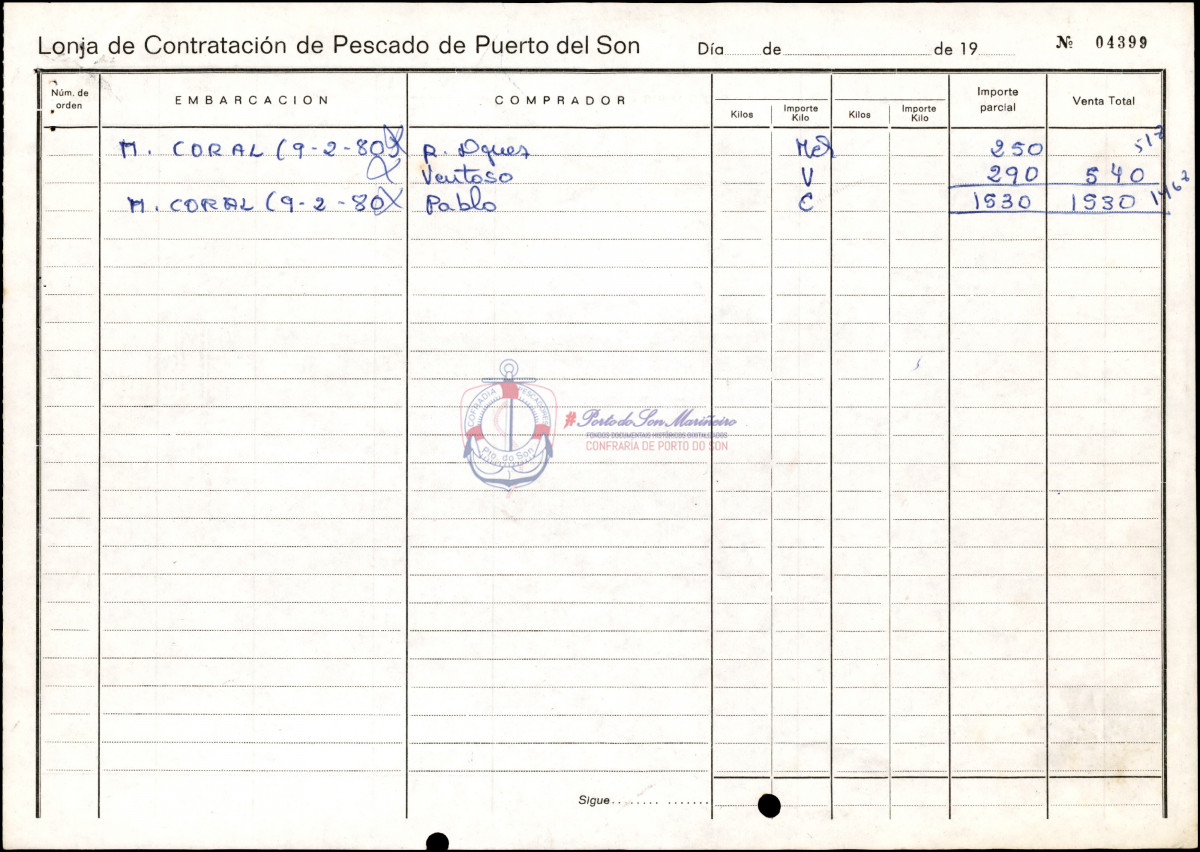 Lonja de Contratación de Pescado de Puerto del Son Día de de 19 Nº 04399
Núm. de orden EMBARCACION COMPRADOR Kilos Importe Kilo Kilos Importe Kilo Importe parcial Venta Total
M. CORAL (9-2-80) 250 517
Ventoso V 290 540
M. CORAL (9-2-80) Pablo C 1530 1530
COFRADIA PESCADORES
Pto. do Son
#Porto do Son Mariñeiro
FONDOS DOCUMENTAIS HISTÓRICOS DIXITALIZADOS
CONFRARÍA DE PORTO DO SON
Sigue